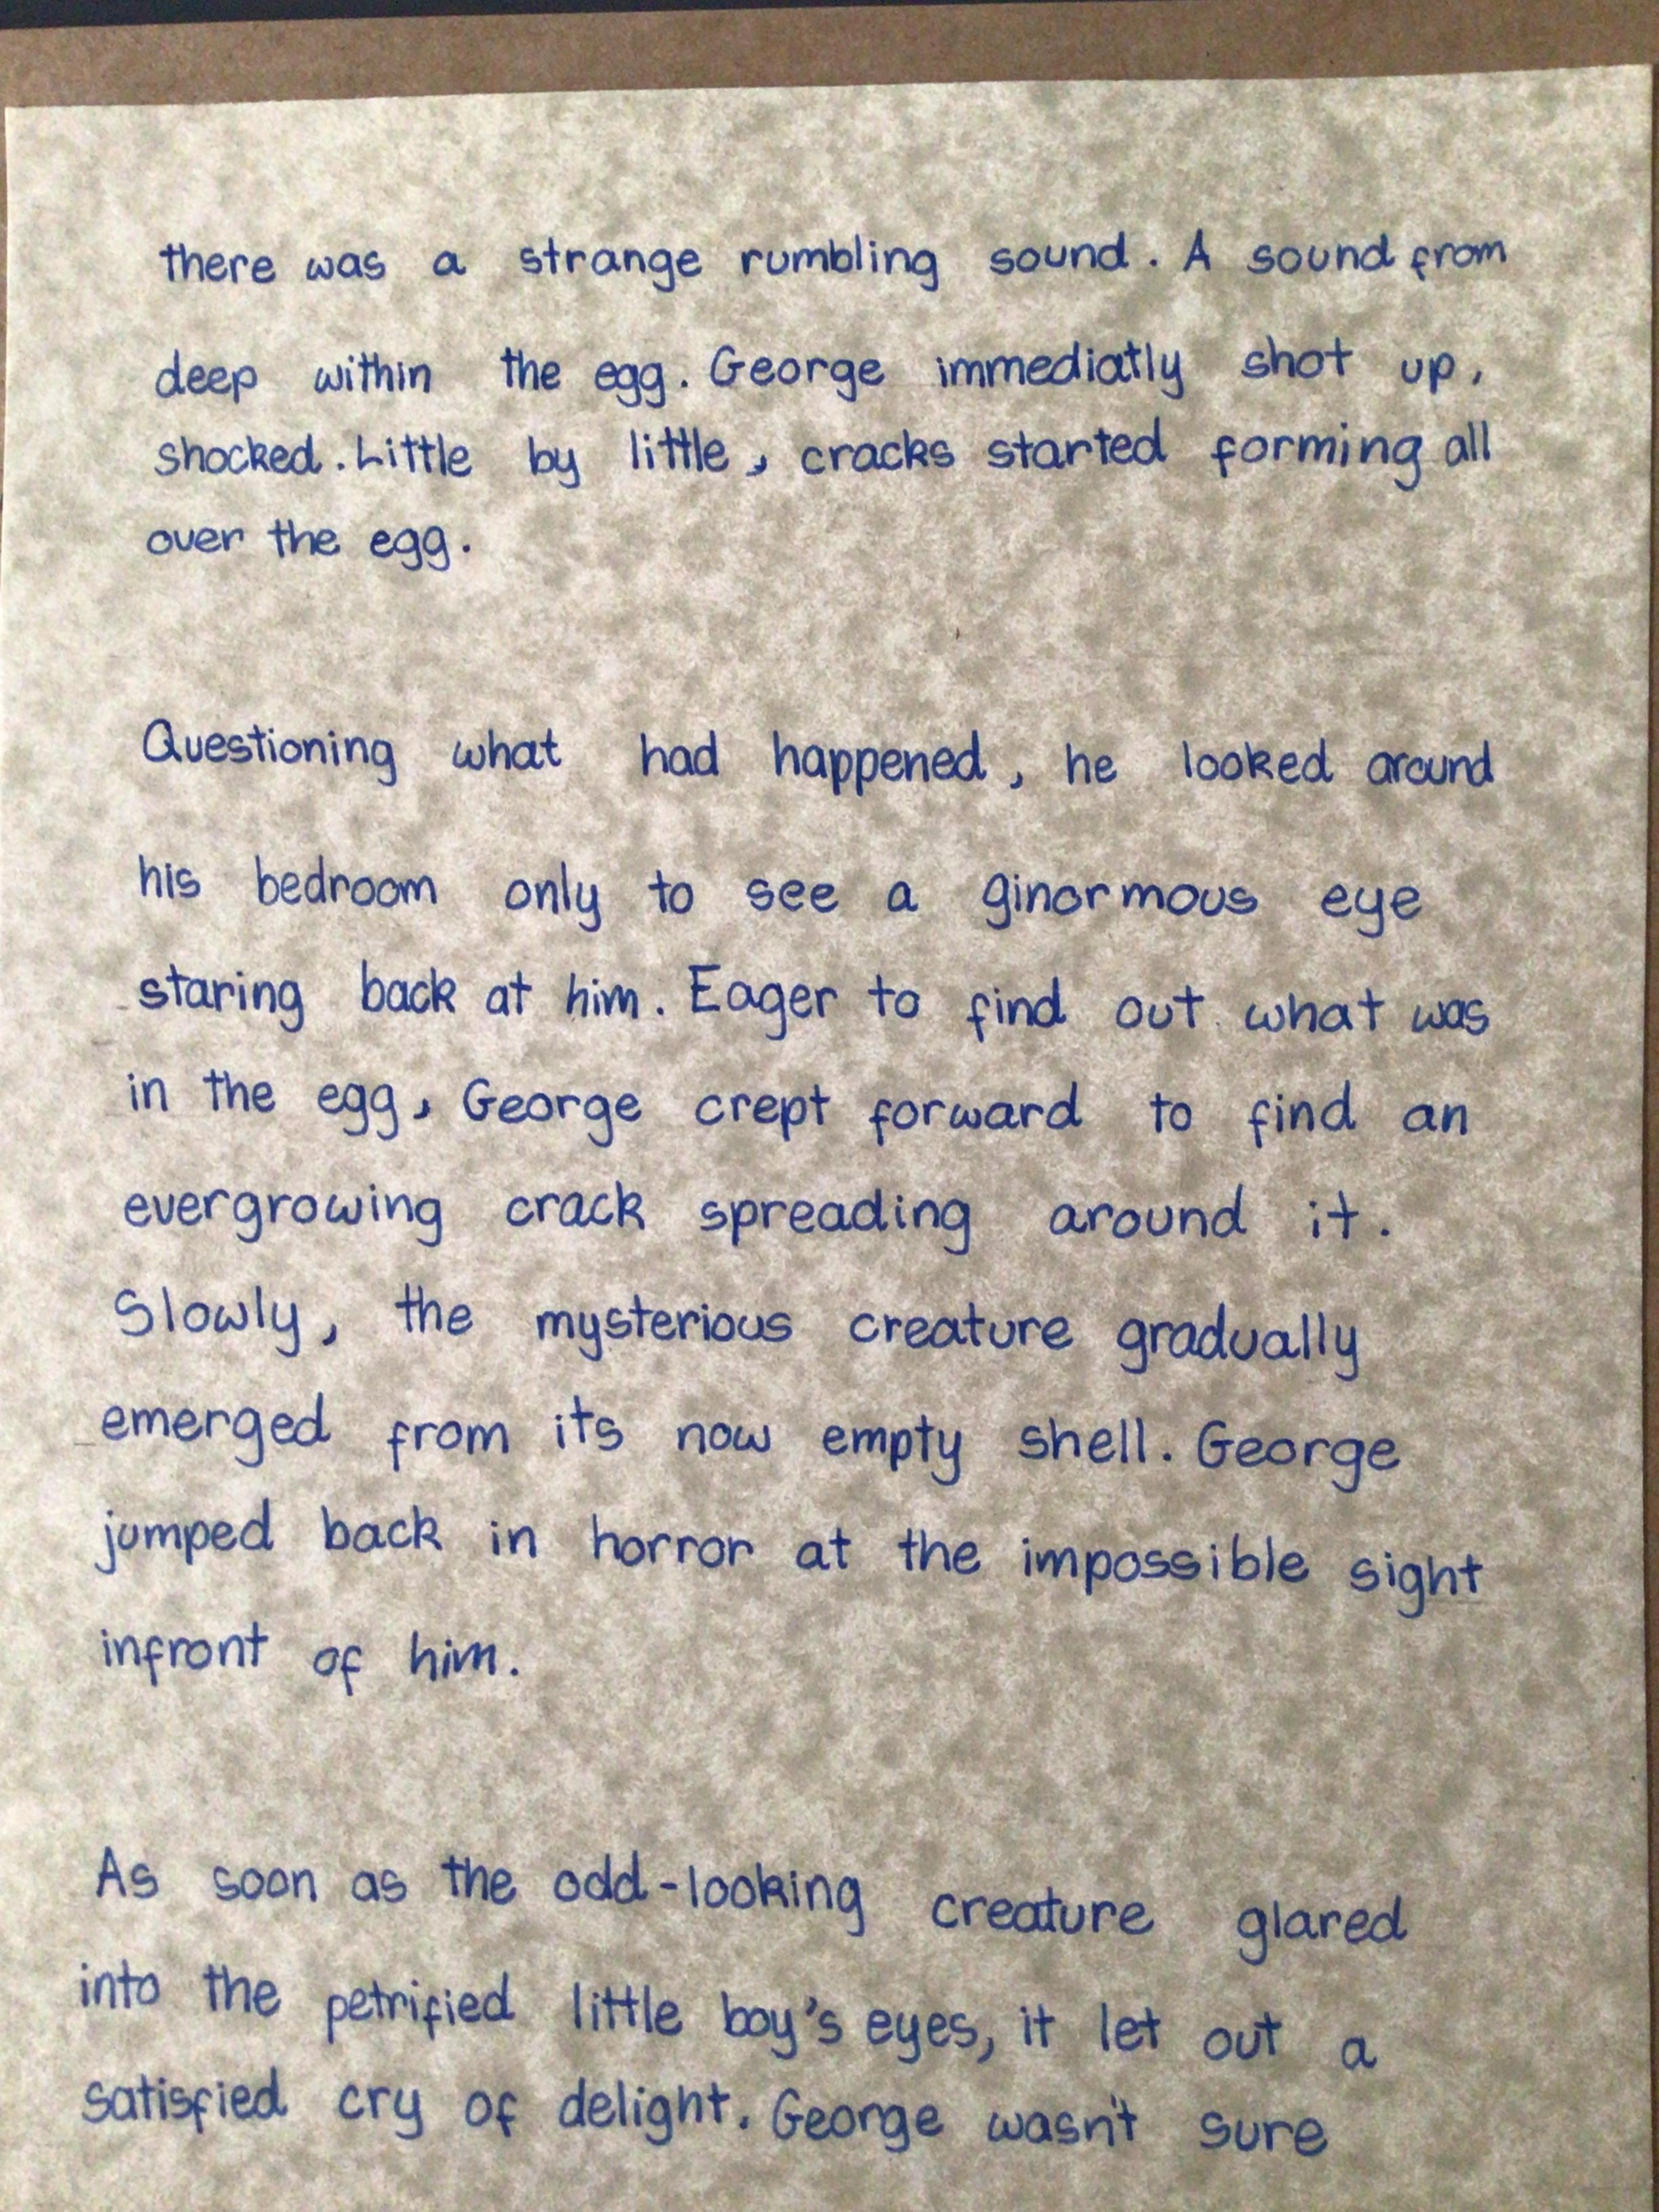 there was a strange rumbling sound. A sound from
deep within the egg. George immediatly shot up,
shocked. Little by little, cracks started forming all
over the egg.
Questioning what had happened, he looked around
his bedroom only to see a ginormous eye
staring back at him. Eager to find out what was
in the egg, George crept forward to find an
evergrowing crack spreading around it.
Slowly, the mysterious creature gradually
emerged from its now empty shell. George
jumped back in horror at the impossible sight
infront of him.
As soon as the odd-looking creature glared
into the petrified little boy's eyes, it let out a
satisfied cry of delight. George wasn't sure